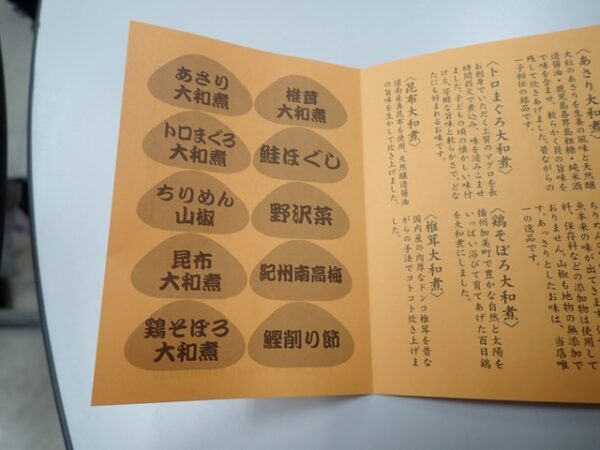 あさり
大和煮
椎茸
大和煮
トロまぐろ
大和煮
鮭ほぐし
ちりめん
山椒
野沢菜
昆布
大和煮
紀州南高梅
鶏そぼろ
大和煮
鰹削り節
〈あさり大和煮〉
大粒のあさりを生姜の風味と天然醸
造醤油・鹿児島喜界島粗糖・純米酒
で味を含ませ、軟らかく貝の旨味を
残して炊きあげました。昔ながらの
一子相伝の銘品です。
〈トロまぐろ大和煮〉
お刺身でいただく上質のマグロを長
時間薪火で煮込み、味を浸みこませ
ました。子どもの頃の懐かしい味付
けと、芳醇な旨味と軟らかさで、どな
たにも好まれるお味です。
〈昆布大和煮〉
道南産真昆布を使用、天然醸造醤油
の旨味を生かして炊き上げました。
魚本来の味が出てきます。
料、保存料などの添加物は使用して
おりません。山椒も地物の無添加で
す。あっさりとしたお味は、当店唯
一の逸品です。
〈鶏そぼろ大和煮〉
播州加美町で豊かな自然と太陽を
いっぱい浴びて育てあげた百日鶏
を大和煮にしました。
〈椎茸大和煮〉
国内産の肉厚なドンコ椎茸を昔な
がらの手法でコトコト炊き上げま
した。